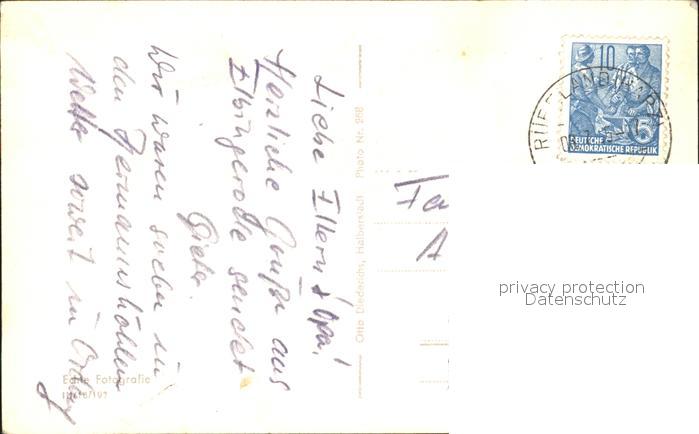 Liebe Eltern + Opa!
Herzliche Grüße aus
Elbingerode sendet
Dieter.
Wir waren soeben in
den Hermannshöhlen
Wetter soweit in Ordng
Echte Fotografie
Otto Diederichs, Halberstadt Photo Nr. 268
10
DEUTSCHE
DEMOKRATISCHE REPUBLIK
5
RÜBELAND (HARZ)
Fa
A
privacy protection
Datenschutz